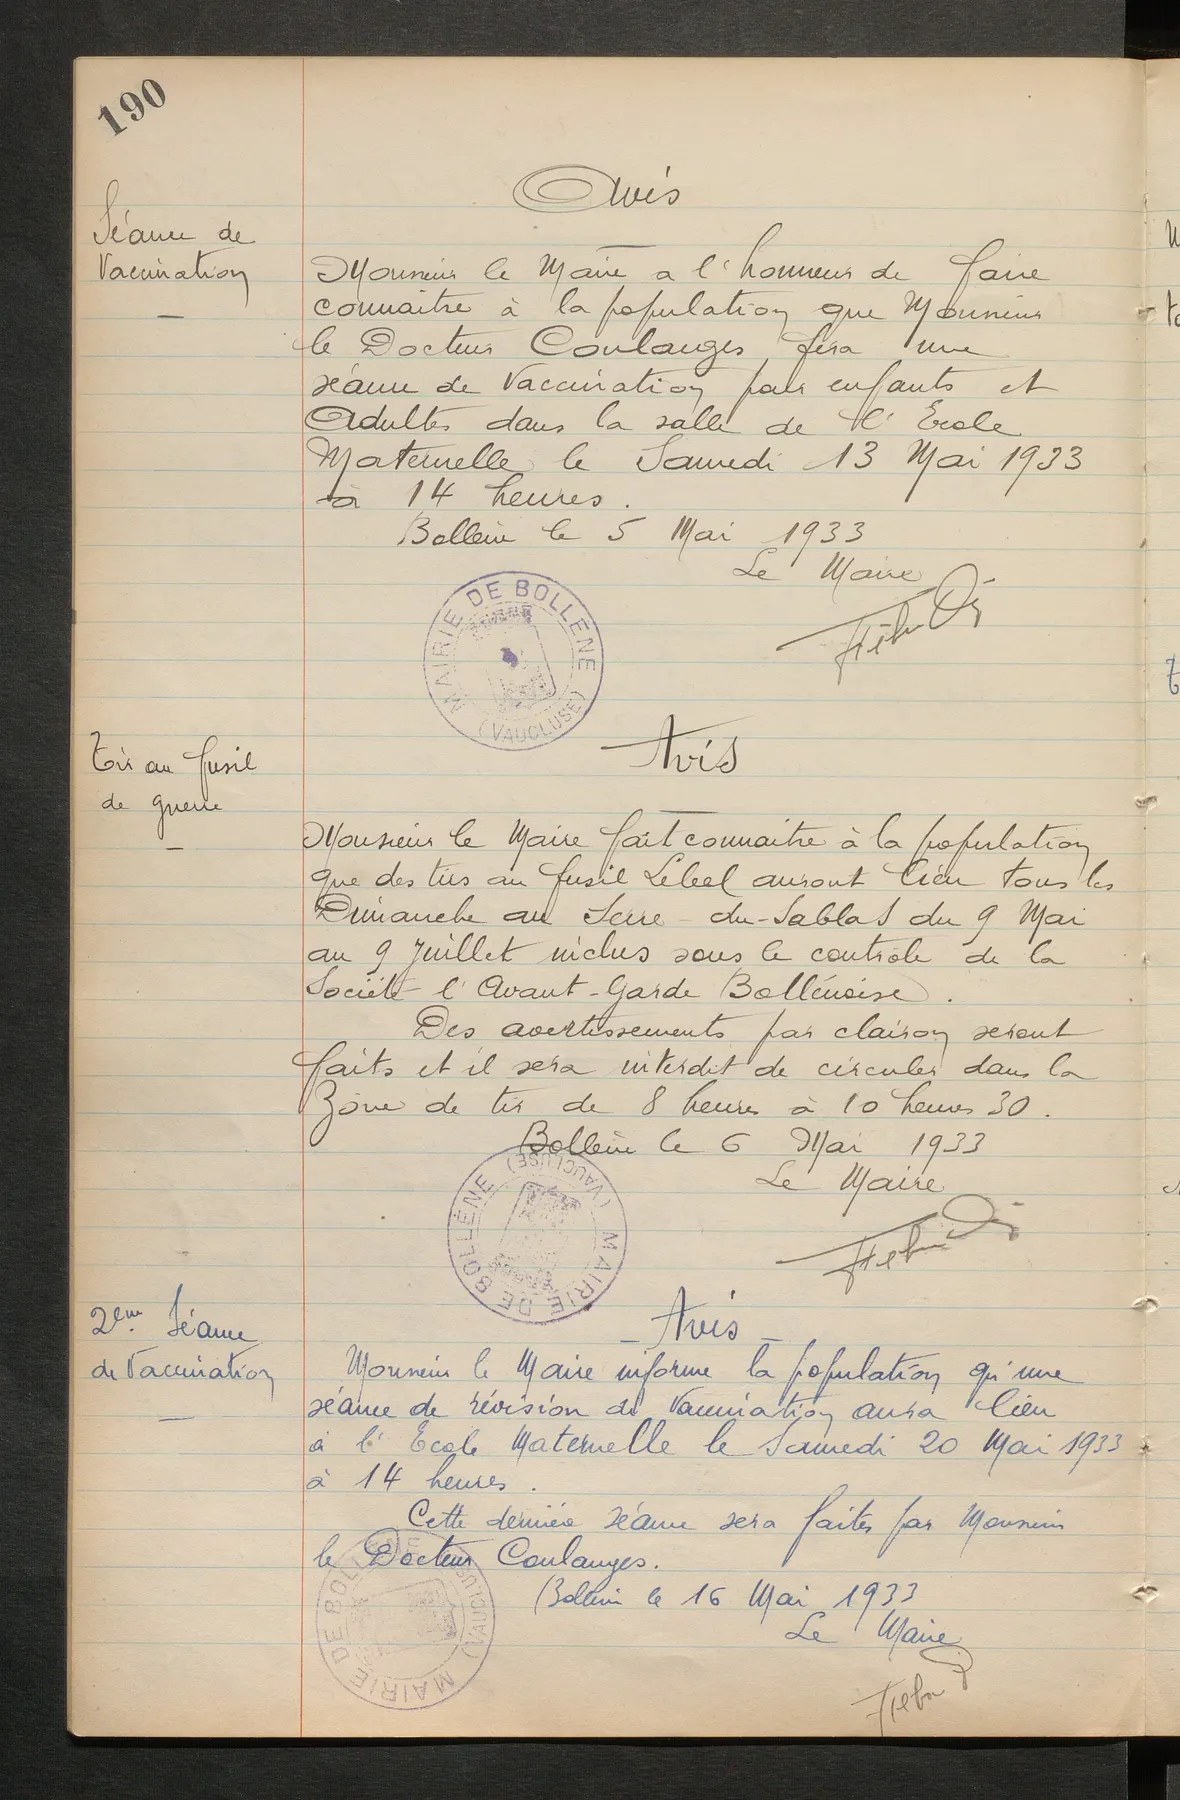 190
Avis
Séance de
Vaccination
Monsieur le Maire a l'honneur de faire
connaitre à la population que Monsieur
le Docteur Coulanges fera une
séance de Vaccination pour enfants et
Adultes dans la salle de l'Ecole
Maternelle le Samedi 13 Mai 1933
à 14 heures.
Bollène le 5 Mai 1933
Le Maire
MAIRIE DE BOLLÈNE
(VAUCLUSE)
Avis
Tir au fusil
de guerre
Monsieur le Maire fait connaitre à la population
que des tirs au fusil Lebel auront lieu tous les
Dimanche au Serre-du-Sablas du 9 Mai
au 9 Juillet inclus sous le controle de la
Société l'Avant-Garde Bollénoise.
Des avertissements par clairon seront
faits et il sera interdit de circuler dans la
Zône de tir de 8 heures à 10 heures 30.
Bollène le 6 Mai 1933
Le Maire
MAIRIE DE BOLLÈNE
(VAUCLUSE)
2ème Séance
de Vaccination
- Avis -
Monsieur le Maire informe la population qu'une
séance de révision de Vaccination aura lieu
à l'Ecole Maternelle le Samedi 20 Mai 1933
à 14 heures.
Cette dernière séance sera faites par Monsieur
le Docteur Coulanges.
Bollène le 16 Mai 1933
Le Maire
MAIRIE DE BOLLÈNE
(VAUCLUSE)